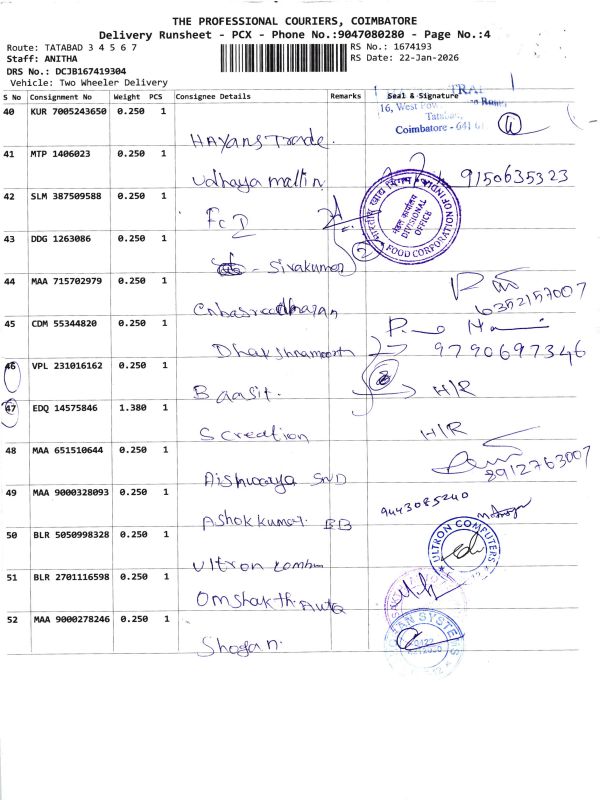 THE PROFESSIONAL COURIERS, COIMBATORE
Delivery Runsheet - PCX - Phone No.:9047080280 - Page No.:4
Route: TATABAD 3 4 5 6 7
RS No.: 1674193
Staff: ANITHA
RS Date: 22-Jan-2026
DRS No.: DCJB167419304
Vehicle: Two Wheeler Delivery
S No Consignment No Weight PCS Consignee Details Remarks Seal & Signature
16, West
Coimbatore - 641
40 KUR 7005243650 0.250 1
Hayans Trade.
41 MTP 1406023 0.250 1
Udhaya 9150635323
42 SLM 387509588 0.250 1
FCI
FOOD CORPORATION OF INDIA
मंडल कार्यालय
DIVISIONAL OFFICE
43 DDG 1263086 0.250 1
- Sivakumar
44 MAA 715702979 0.250 1
6352157007
45 CDM 55344820 0.250 1
9790697346
46 VPL 231016162 0.250 1
Baasit. H/R
47 EDQ 14575846 1.380 1
S creation H/R
48 MAA 651510644 0.250 1
Aishwarya SND 8912763007
49 MAA 9000328093 0.250 1
Ashok kumar. BB 9443085240
50 BLR 5050998328 0.250 1
Ultron
ULTRON COMPUTERS
51 BLR 2701116598 0.250 1
Omshakthi Auto
52 MAA 9000278246 0.250 1